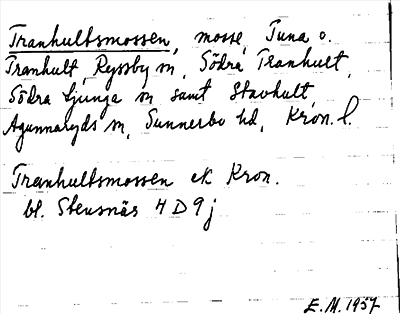 Tranhultsmossen, mosse, Tuna o.
Tranhult, Ryssby sn, Södra Tranhult,
Södra Ljunga sn samt Stavhult,
Agunnaryds sn, Sunnerbo hd, Kron. l.
Tranhultsmossen ek Kron.
bl. Stensnäs 4D9j
E.M. 1957